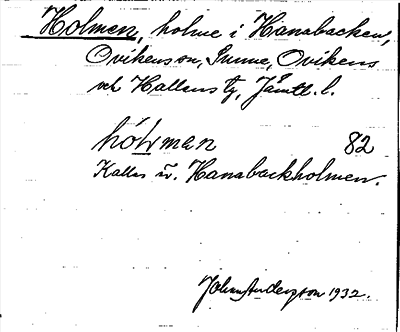 Holmen, holme i Hanabacken,
Ovikens sn, Sunne, Ovikens
och Hallens tg, Jämtl. l.
hólman 82
Kallas äv. Hanabackholmen.
Johan Anderzon 1932.